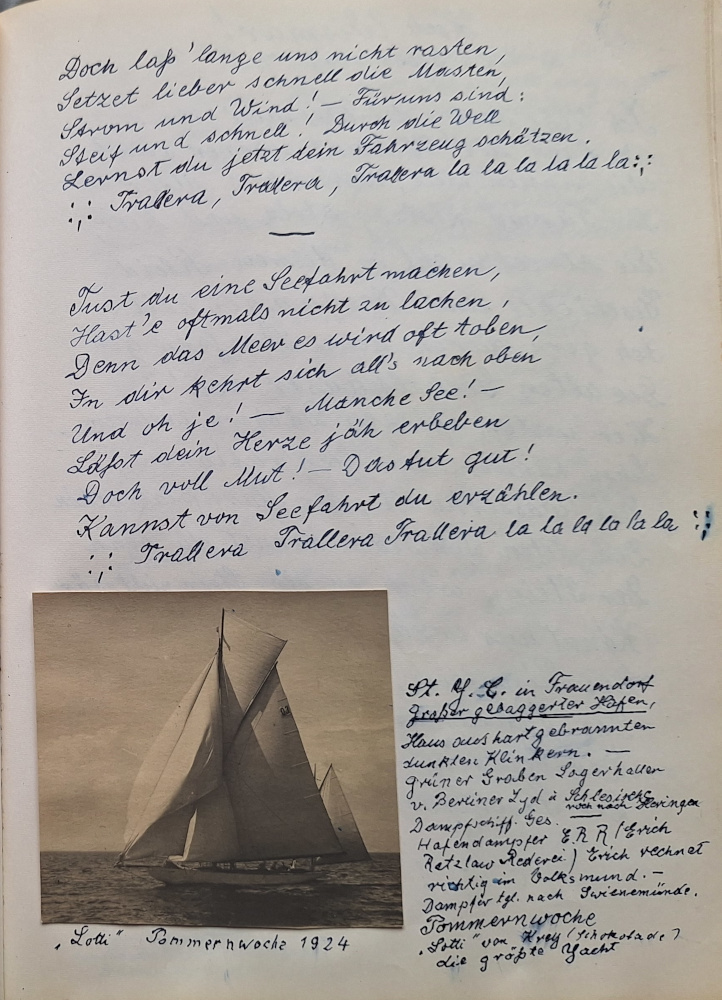 Doch laß 'lange uns nicht rasten,
Setzet lieber schnell die Masten,
Strom und Wind! — Für uns sind:
Steif und schnell! Durch die Well
Lernst du jetzt dein Fahrzeug schätzen.
:,: Trallera, Trallera, Trallera la la la la la la la:,:
Tust du eine Seefahrt machen,
Hast'e oftmals nicht zu lachen,
Denn das Meer es wird oft toben,
In dir kehrt sich all's nach oben
Und oh je! — Manche See! —
Läßst dein Herze jäh erbeben
Doch voll Mut! — Das tut gut!
Kannst von Seefahrt du erzählen.
:,: Trallera Trallera Trallera la la la la la la la :,:
St. Y. C. in Frauendorf
Großer gebaggerter Hafen,
Haus aus hart gebrannten
dunklen Klinkern. —
Grüner Graben Lagerhallen
v. Berliner Lyd u Schlesische
noch nach Heringen
Dampfschiff. Ges. —
Hafendampfer E. R R (Erich
Retzlaw Rederei) Erich rechnet
richtig im Volksmund. —
Dampfer tgl. nach Swienemünde.
Pommernwoche
"Lotti" von Krey (Schokolade)
die größte Yacht
"Lotti" Pommernwoche 1924